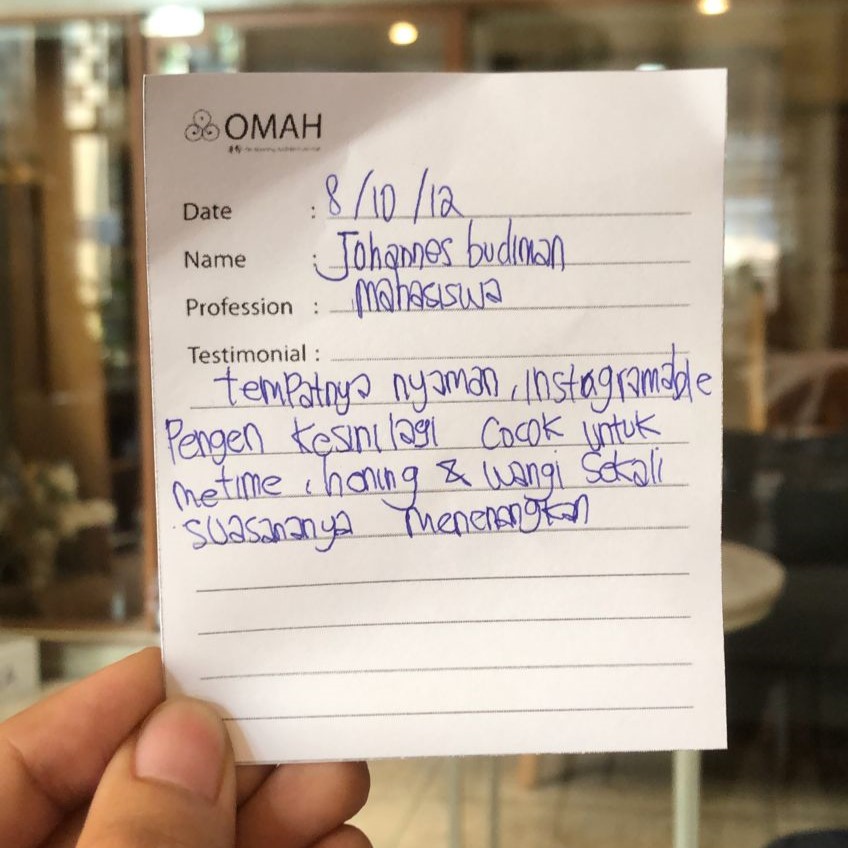 OMAH
Date : 8/10/12
Name : Johannes budiman
Profession : Mahasiswa
Testimonial :
tempatnya nyaman, Instagramable
Pengen Kesini lagi Cocok untuk
metime, hening & wangi Sekali
suasananya menenangkan